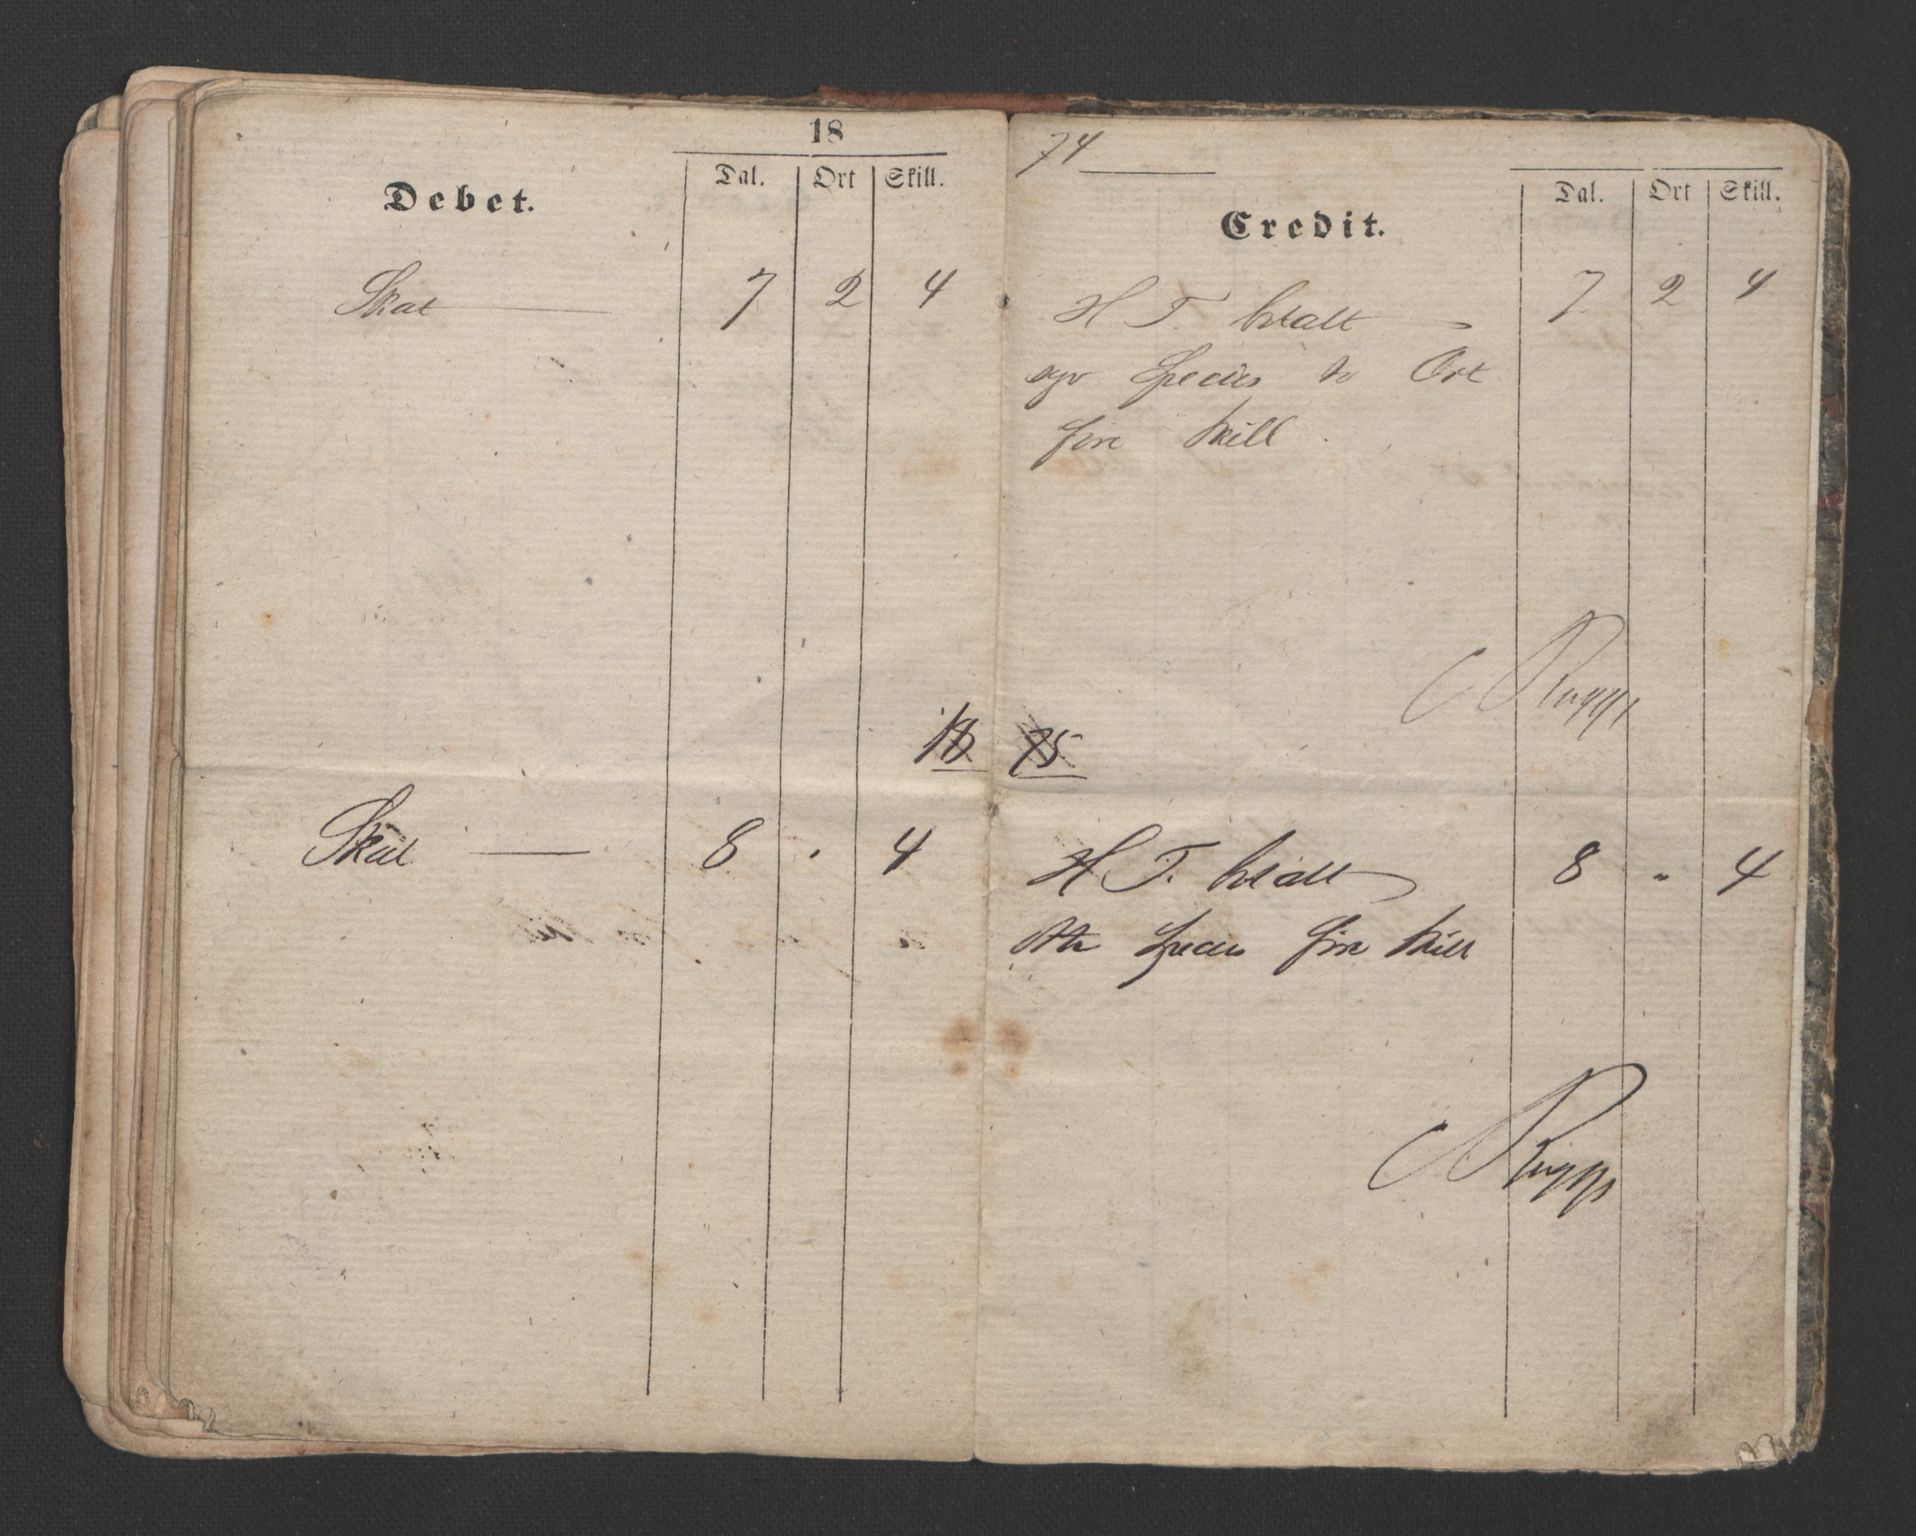 18 74
Debet. Dal. Ort Skill.
Skat 7 2 4
18
Skat 8 " 4
Credit. Dal. Ort Skill.
H. T. betalt 7 2 4
syv Species to Ort
fire Skill
75
H. T. betalt 8 " 4
otte Species fire Skill